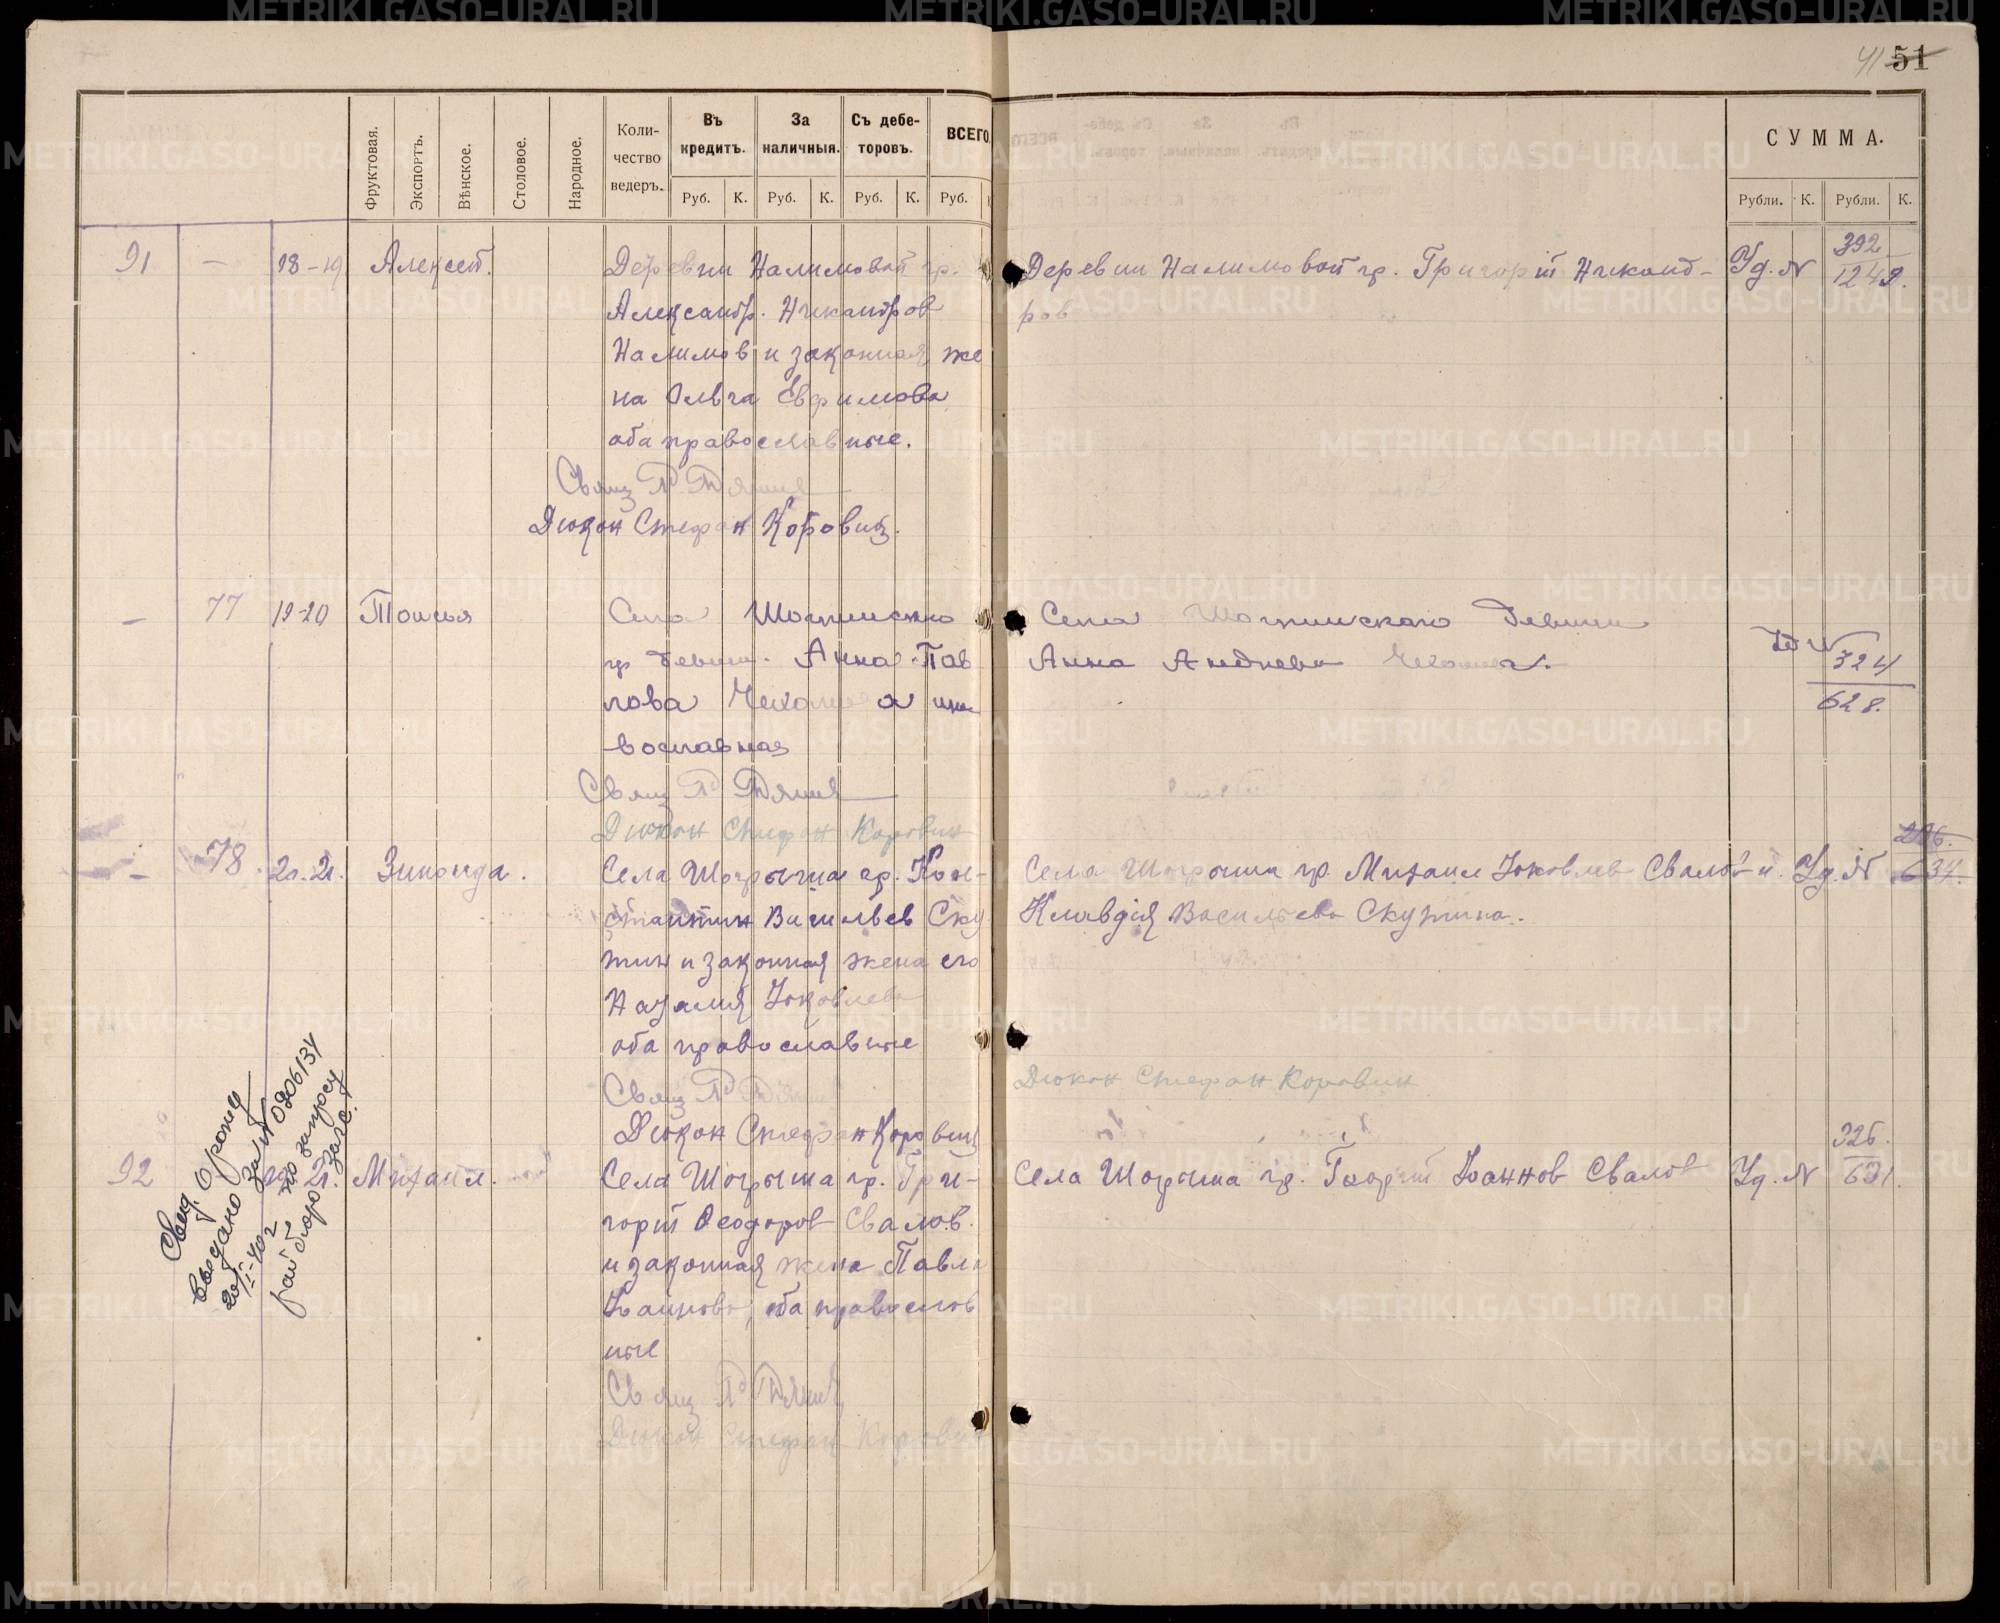 41 51
Фруктовая.
Экспортъ.
Вѣнское.
Столовое.
Народное.
Коли-
чество
ведеръ.
Въ
кредитъ.
За
наличныя.
Съ дебе-
торовъ.
ВСЕГО
Руб. К. Руб. К. Руб. К. Руб.
91 — 18-19 Алексей.
Деревни Налимовой гр.
Александр. Никандров
Налимов и законная же
на Ольга Ефимова
оба православные.
Свящ
Диакон Стефан Коровин.
— 77 19-20 Таисья
Села
гр девица. Анна Пав
лова
вославная
Свящ
Диакон Стефан Коровин
— 78. 20. 21. Зинаида.
Села Шогрыша гр. Кон-
стантин Васильев Ску
тин и законная жена его
Наталия Яковлева
оба православные
Свящ
Диакон Стефан Коровин
92 21. Михаил.
Села Шогрыша гр. Гри-
горий Феодоров Свалов.
и законная жена Павла
Иоаннова, оба православ
ные
Свящ
Диакон Стефан Коровин
Свид. о рожд
выдано за № 0206134
по запросу
рай бюро загс.
СУММА.
Рубли. К. Рубли. К.
Деревни Налимовой гр. Григорий Никанд-
ров
Уд. №
392
Села девица
Анна Андреева
Уд №
324
628.
Села Шогрыша гр Михаил Яковлев Свалов и
Клавдия Васильева Скутина.
Уд. №
634.
Диакон Стефан Коровин
Села Шогрыша гр. Георгий Иоаннов Свалов
Уд. №
326.
631.
METRIKI.GASO-URAL.RU